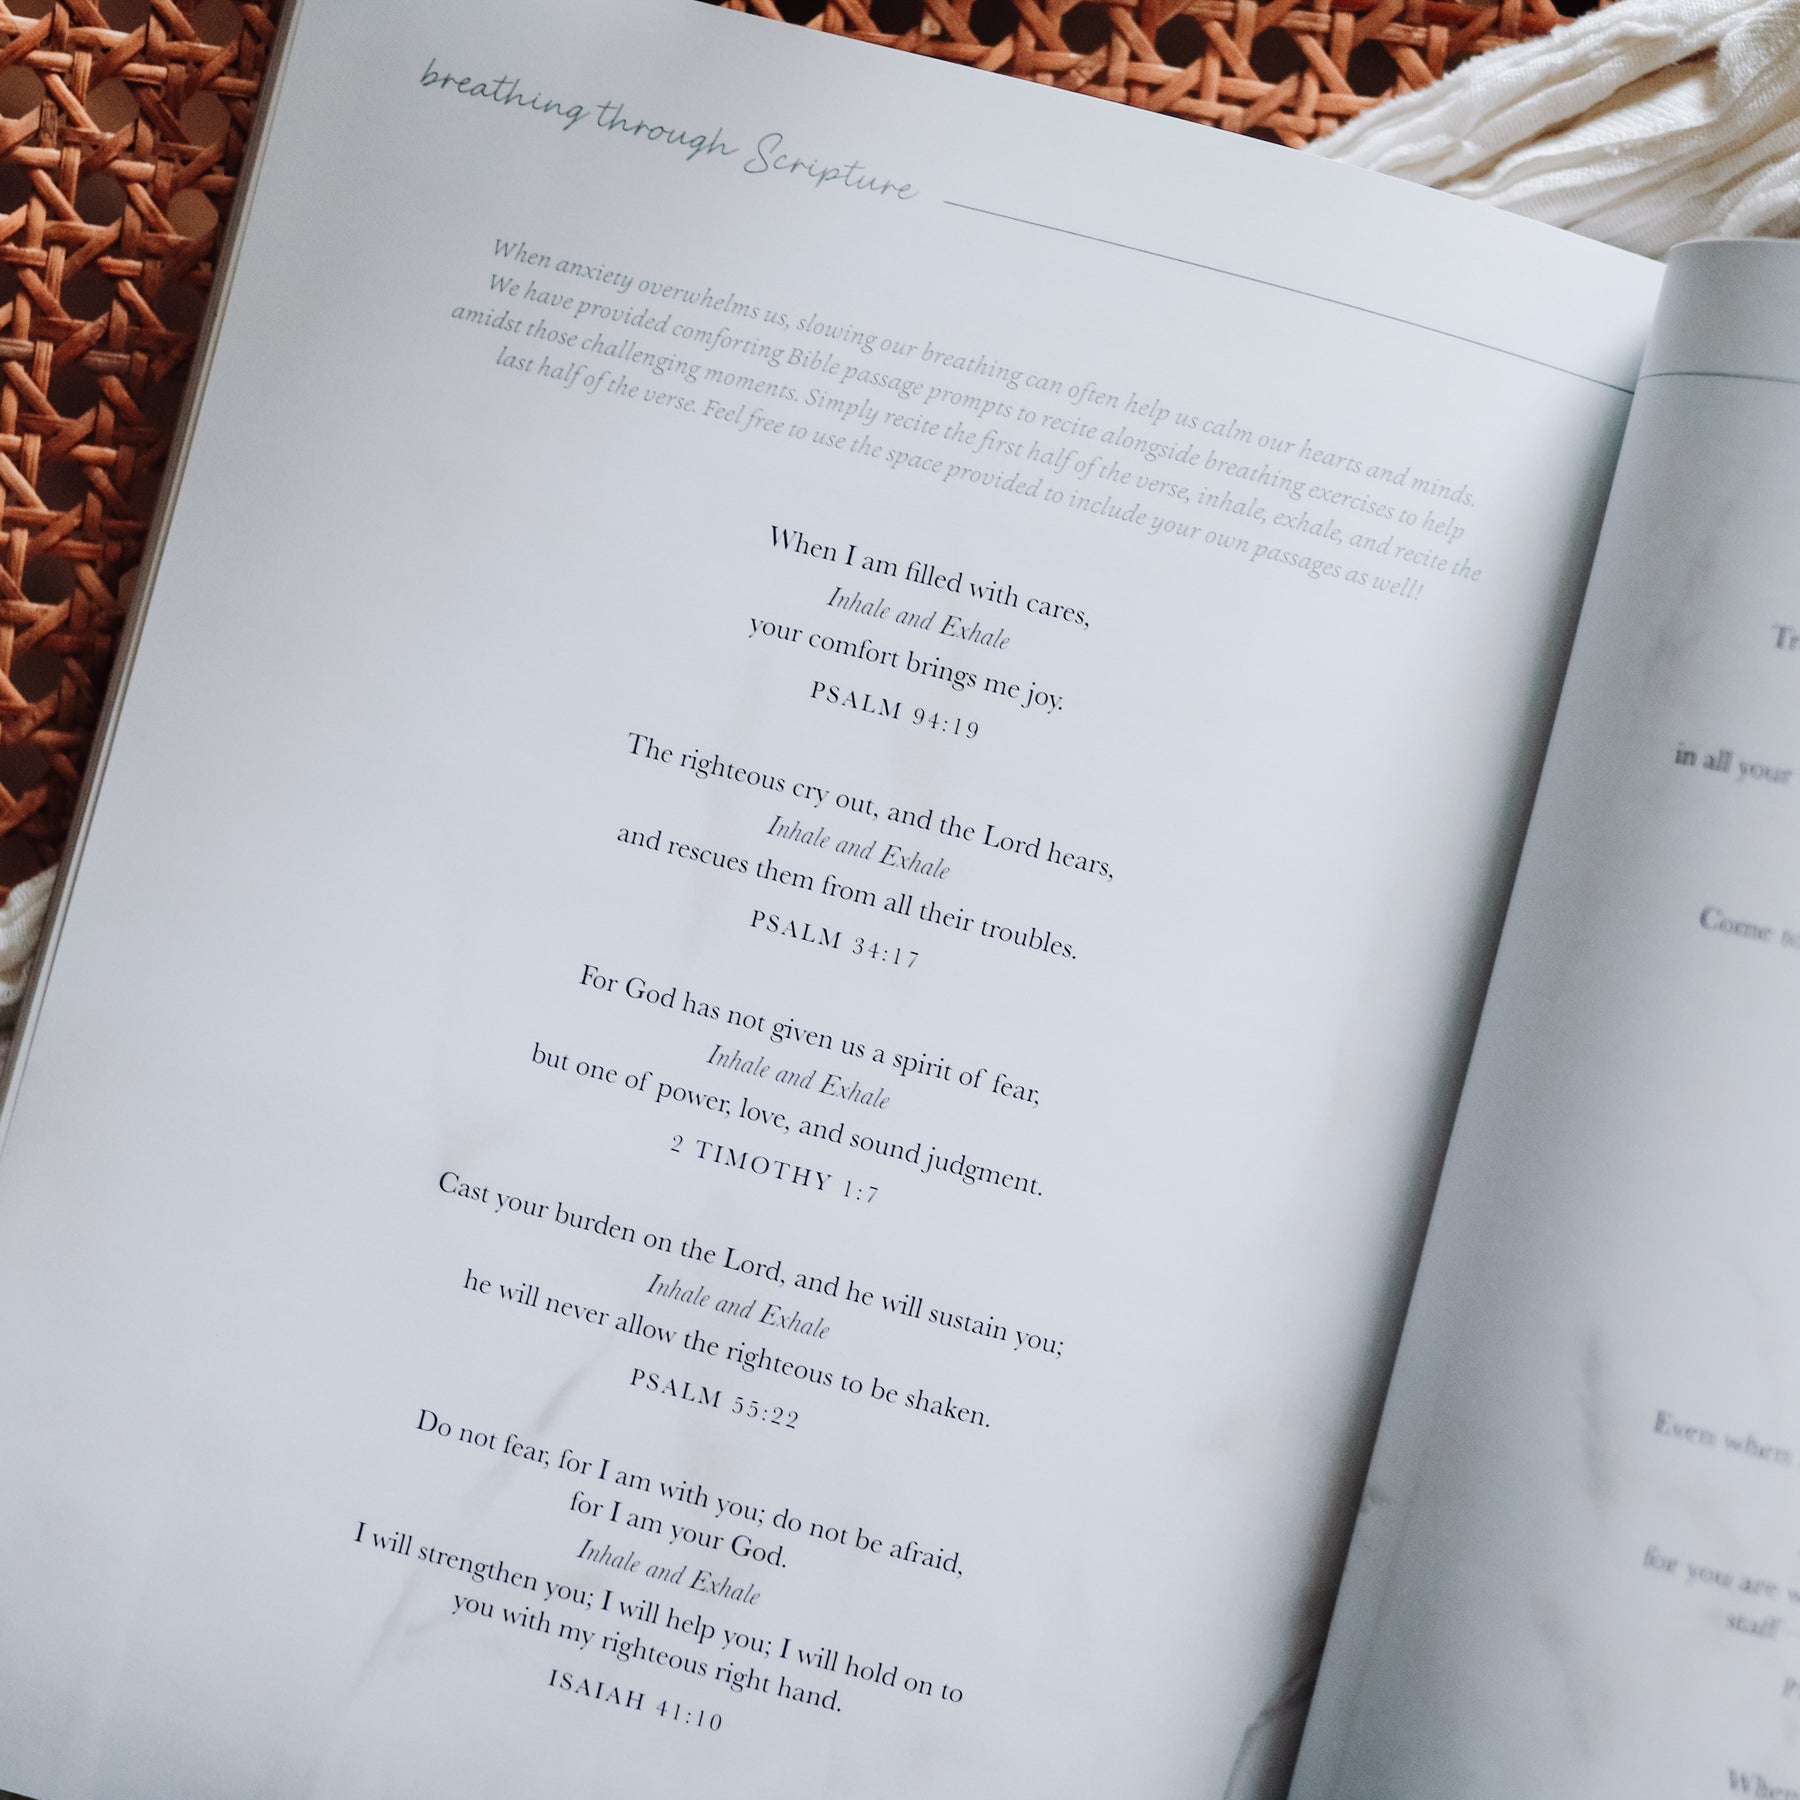 breathing through Scripture
When anxiety overwhelms us, slowing our breathing can often help us calm our hearts and minds.
We have provided comforting Bible passage prompts to recite alongside breathing exercises to help
amidst those challenging moments. Simply recite the first half of the verse, inhale, exhale, and recite the
last half of the verse. Feel free to use the space provided to include your own passages as well!
When I am filled with cares,
Inhale and Exhale
your comfort brings me joy.
PSALM 94:19
The righteous cry out, and the Lord hears,
Inhale and Exhale
and rescues them from all their troubles.
PSALM 34:17
For God has not given us a spirit of fear,
Inhale and Exhale
but one of power, love, and sound judgment.
2 TIMOTHY 1:7
Cast your burden on the Lord, and he will sustain you;
Inhale and Exhale
he will never allow the righteous to be shaken.
PSALM 55:22
Do not fear, for I am with you; do not be afraid,
for I am your God.
Inhale and Exhale
I will strengthen you; I will help you; I will hold on to
you with my righteous right hand.
ISAIAH 41:10
in all your
Come
Even when
for you are
staff
When